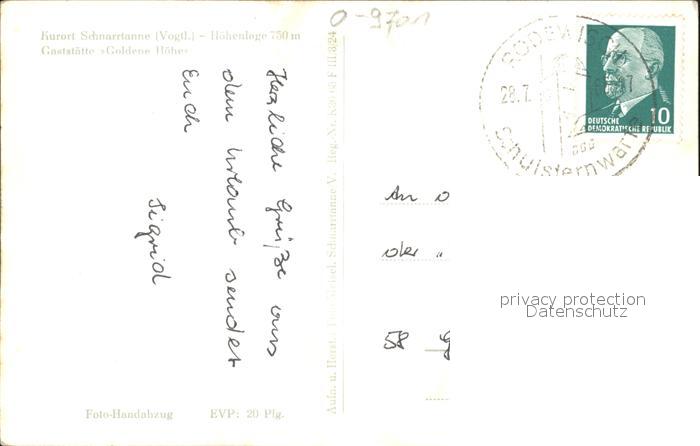 O-9701
Kurort Schnarrtanne (Vogtl.) – Höhenlage 750 m
Gaststätte »Goldene Höhe«
Herzliche Grüße aus
dem Urlaub sendet
Euch
Sigrid
Foto-Handabzug EVP: 20 Pfg.
Aufn. u. Herst. Schnarrtanne V. Reg.-Nr.
RODEWISCH
28.7.
Schulsternwarte
DEUTSCHE
DEMOKRATISCHE REPUBLIK
10
An
der "
58
privacy protection
Datenschutz